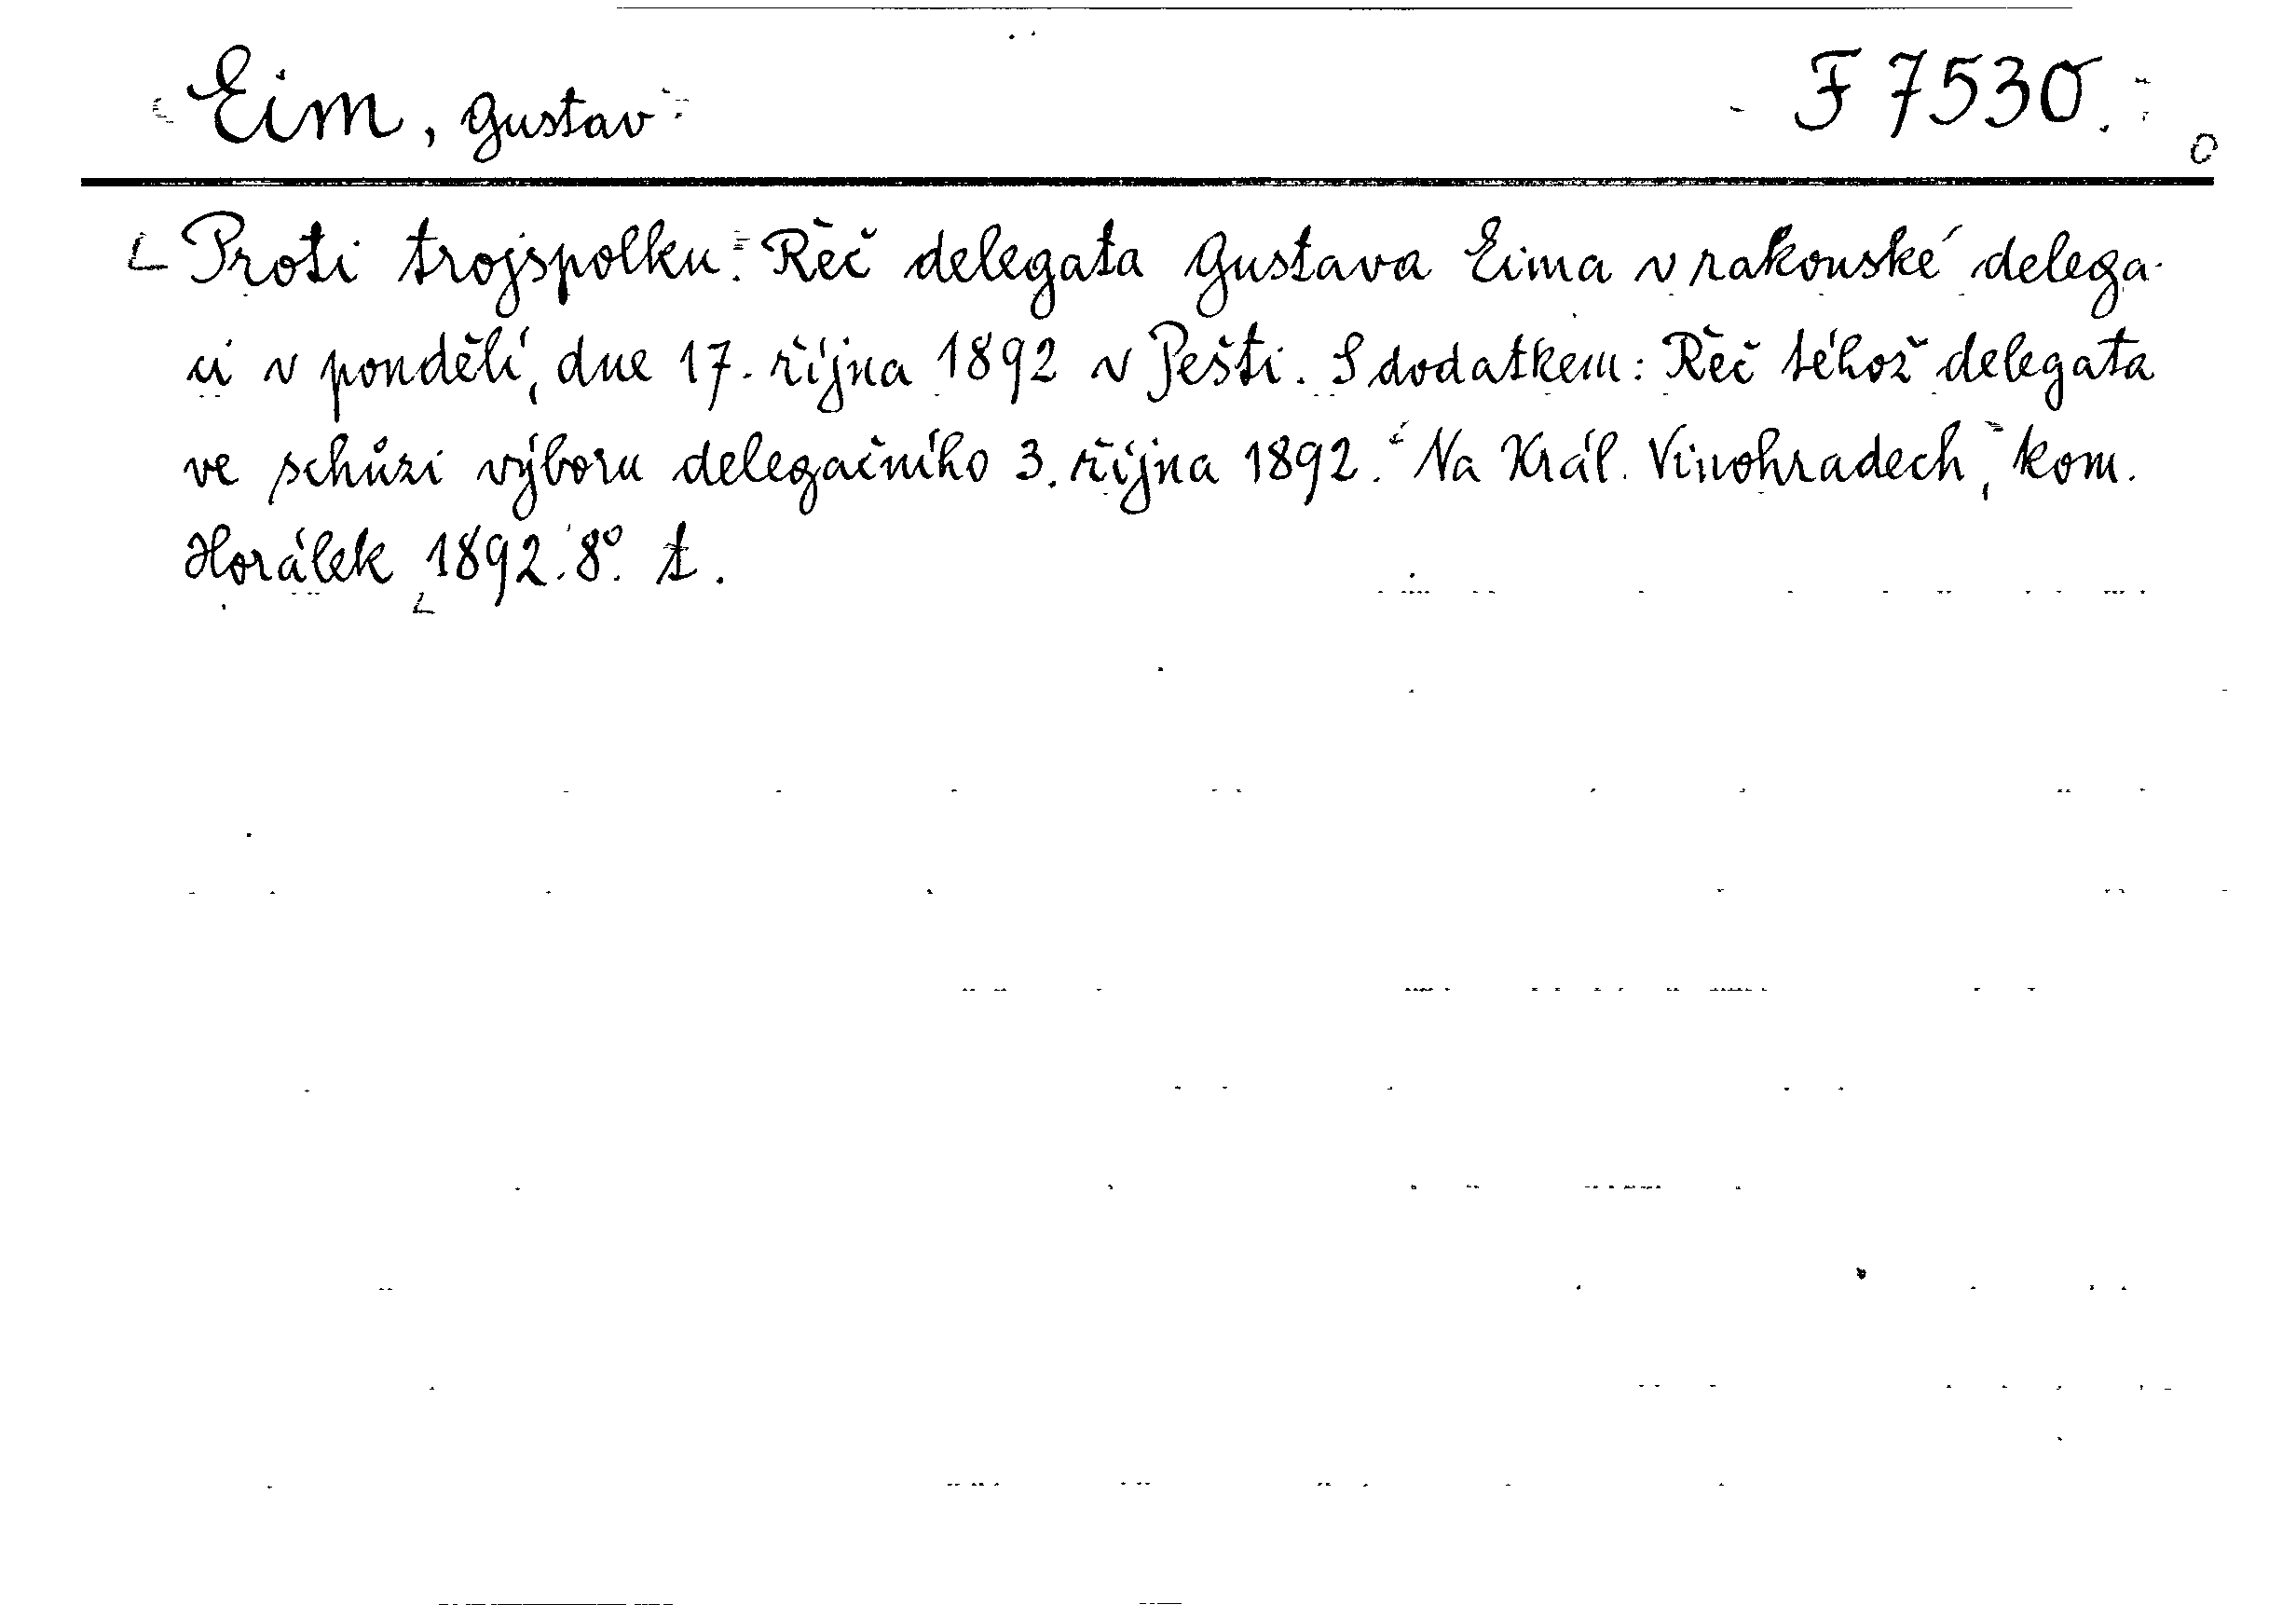 Eim, Gustav
F 7530.
Proti trojspolku. Řeč delegata Gustava Eima v rakouské delega-
ci v pondělí, dne 17. října 1892 v Pešti. S dodatkem: Řeč téhož delegata
ve schůzi výboru delegačního 3. října 1892. Na Král. Vinohradech, kom.
Horálek 1892. 8°. t.